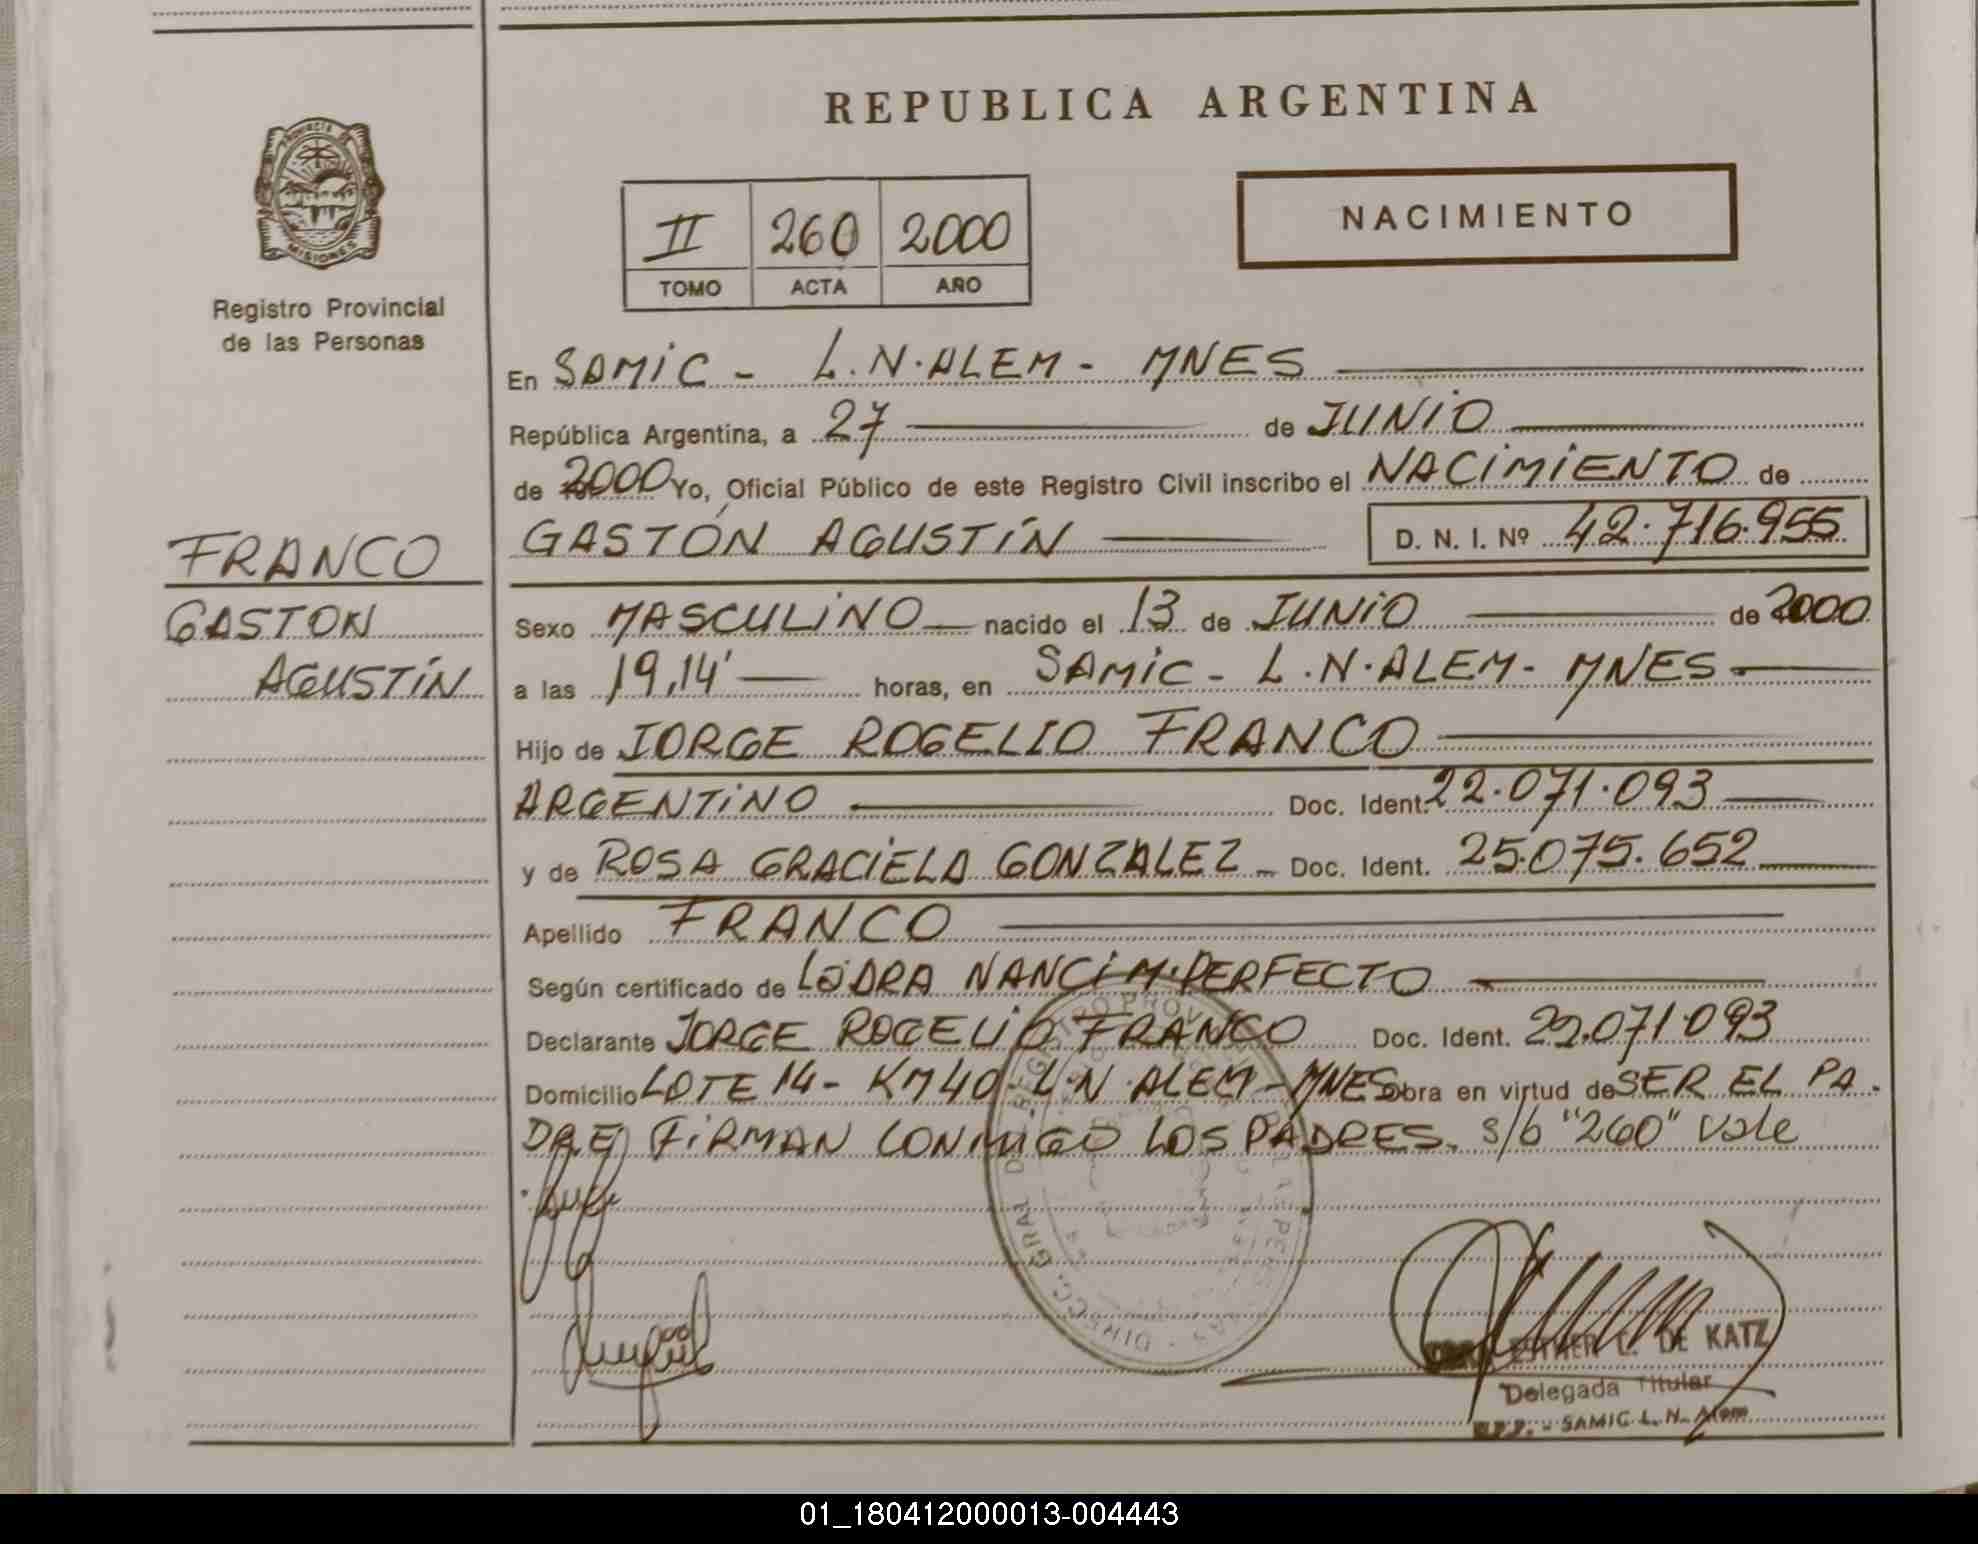 REPUBLICA ARGENTINA
PROVINCIA DE
MISIONES
Registro Provincial
de las Personas
II 260 2000
TOMO ACTA AÑO
NACIMIENTO
En SAMIC - L.N.ALEM - MNES
República Argentina, a 27 de JUNIO
de 2000 Yo, Oficial Público de este Registro Civil inscribo el NACIMIENTO de
GASTÓN AGUSTÍN D. N. I. Nº 42.716.955
FRANCO
GASTON
AGUSTÍN
Sexo MASCULINO nacido el 13 de JUNIO de 2000
a las 19,14' horas, en SAMIC - L.N.ALEM - MNES
Hijo de JORGE ROGELIO FRANCO
ARGENTINO Doc. Ident. 22.071.093
y de ROSA GRACIELA GONZALEZ - Doc. Ident. 25.075.652
Apellido FRANCO
Según certificado de NANCI M. PERFECTO
Declarante JORGE ROGELIO FRANCO Doc. Ident. 22.071.093
Domicilio LOTE 14 - KM 40 - L.N.ALEM - MNES Obra en virtud de SER EL PA-
DRE FIRMAN CONMIGO LOS PADRES. s/b "260" vale
ESTHER C. DE KATZ
Delegada Titular
SAMIC L. N. Alem
01_180412000013-004443